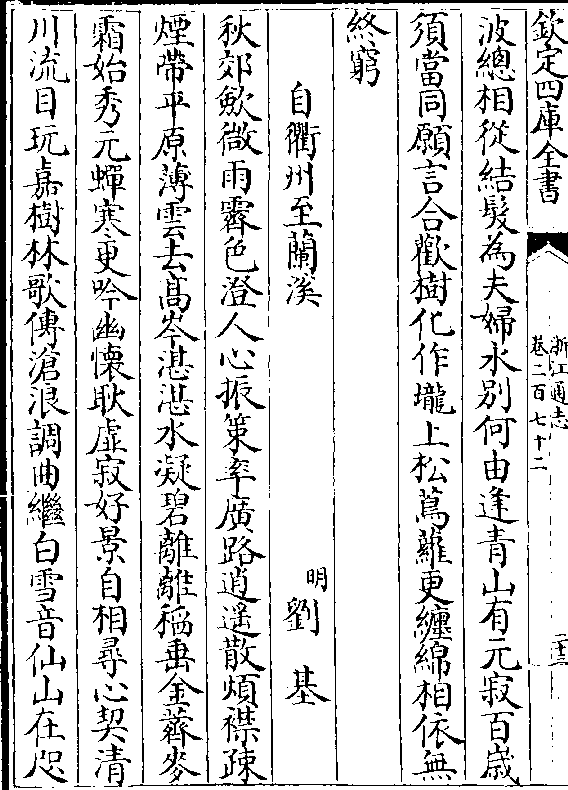 欽定四庫全書
浙江通志
卷二百七十二
二十三
波總相從結髮為夫婦水別何由逢青山有元寂百歲
須當同願言合歡樹化作壠上松蔦蘿更纏綿相依無
終窮
自衢州至蘭溪
明劉基
秋郊歛微雨霽色澄人心振策率廣路逍遥散煩襟疎
煙帶平原薄雲去髙岑湛湛水凝碧離離稲垂金蕎麥
霜始秀元蟬寒更吟幽懐耿虛寂好景自相尋心契清
川流目玩嘉樹林歌傳滄浪調曲繼白雪音仙山在咫